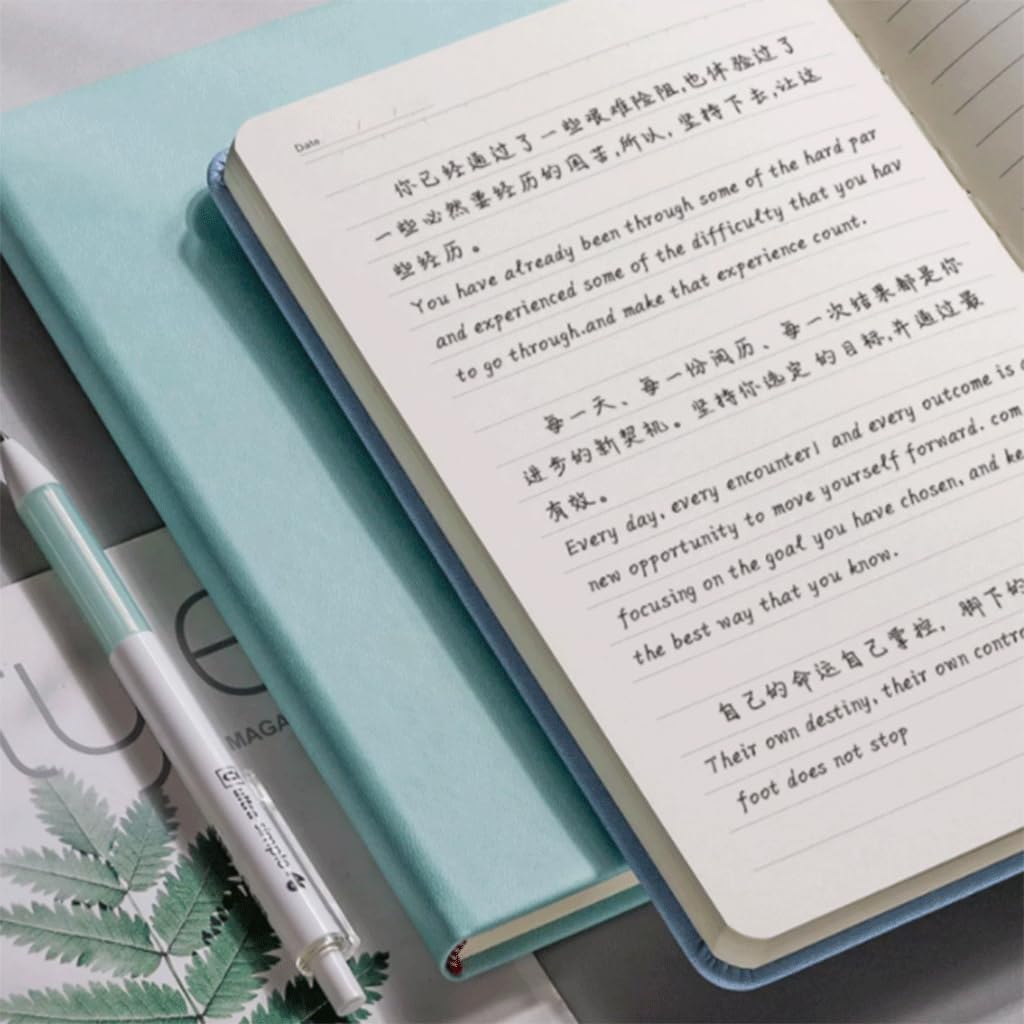 Date
你已经通过了一些艰难险阻,也体验过了
一些必然要经历的困苦,所以,坚持下去,让这
些经历。
You have already been through some of the hard par
and experienced some of the difficulty that you hav
to go through.and make that experience count.
每一天、每一份阅历、每一次结果都是你
进步的新契机。坚持你选定的目标,并通过最
有效。
Every day, every encounter! and every outcome is a
new opportunity to move yourself forward. com
focusing on the goal you have chosen, and ke
the best way that you know.
自己的命运自己掌控, 脚下的
Their own destiny, their own contro
foot does not stop
MAGA
ultra simple